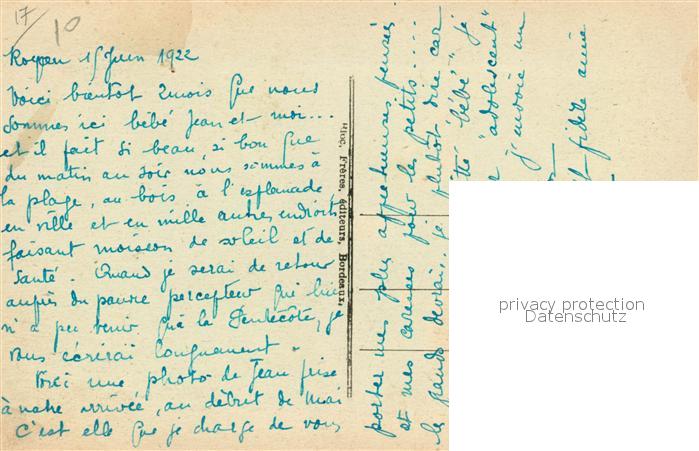 17
10
Royan 15 Juin 1922
Voici bientot 2 mois que nous
sommes ici bébé Jean et moi...
et il fait si beau, si bon que
du matin au soir nous sommes à
la plage, au bois à l'esplanade
en ville et en mille autres endroits
faisant moisson de soleil et de
santé. Quand je serai de retour
auprès du pauvre percepteur qui lui
n'a pu venir qu'à la Pentecôte, je
vous écrirai longuement.
Voici une photo de Jean prise
à notre arrivée, au début de Mai
C'est elle que je charge de vous
porter mes plus affectueuses pensées
et mes caresses pour les petits....
les grands devrai.. je plutôt dire car
bébé" je
"adolescent"
j'envoie un
fidèle amie
Frères, éditeurs, Bordeaux.
privacy protection
Datenschutz